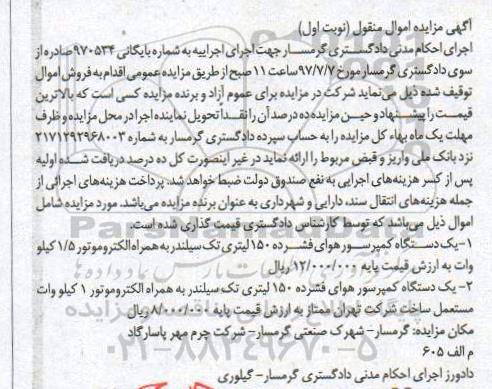 آگهی مزایده اموال منقول (نوبت اول)
اجرای احکام مدنی دادگستری گرمسار جهت اجرای اجراییه به شماره بایگانی ۹۷۰۵۳۴ صادره از
سوی دادگستری گرمسار مورخ ۹۷/۷/۷ ساعت ۱۱ صبح از طریق مزایده عمومی اقدام به فروش اموال
توقیف شده ذیل می نماید شرکت در مزایده برای عموم آزاد و برنده مزایده کسی است که بالاترین
قیمت را پیشنهاد و حین مزایده ده درصد آن را نقدا تحویل نماینده اجرا در محل مزایده و ظرف
مهلت یک ماه بهاء کل مزایده را به حساب سپرده دادگستری گرمسار به شماره ۲۱۷۱۲۹۲۹۶۸۰۰۳
نزد بانک ملی واریز و قبض مربوط را ارائه نماید در غیر اینصورت کل ده درصد دریافت شده اولیه
پس از کسر هزینه‌های اجرایی به نفع صندوق دولت ضبط خواهد شد. پرداخت هزینه‌های اجرائی از
جمله هزینه‌های انتقال سند، دارایی و شهرداری به عنوان برنده مزایده می‌باشد. مورد مزایده شامل
اموال ذیل می‌باشد که توسط کارشناس دادگستری قیمت گذاری شده است.
۱- یک دستگاه کمپرسور هوای فشرده ۱۵۰ لیتری تک سیلندر به همراه الکتروموتور ۱/۵ کیلو
وات به ارزش قیمت پایه ۱۲/۰۰۰/۰۰۰ ریال
۲- یک دستگاه کمپرسور هوای فشرده ۱۵۰ لیتری تک سیلندر به همراه الکتروموتور ۱ کیلو وات
مستعمل ساخت شرکت تهران ممتاز به ارزش قیمت پایه ۸/۰۰۰/۰۰۰ ریال
مکان مزایده: گرمسار- شهرک صنعتی گرمسار- شرکت چرم مهر پاسارگاد
م الف ۶۰۵
دادورز اجرای احکام مدنی دادگستری گرمسار- گیلوری
۰۲۱-۸۸۳۴۹۶۷۰-۵